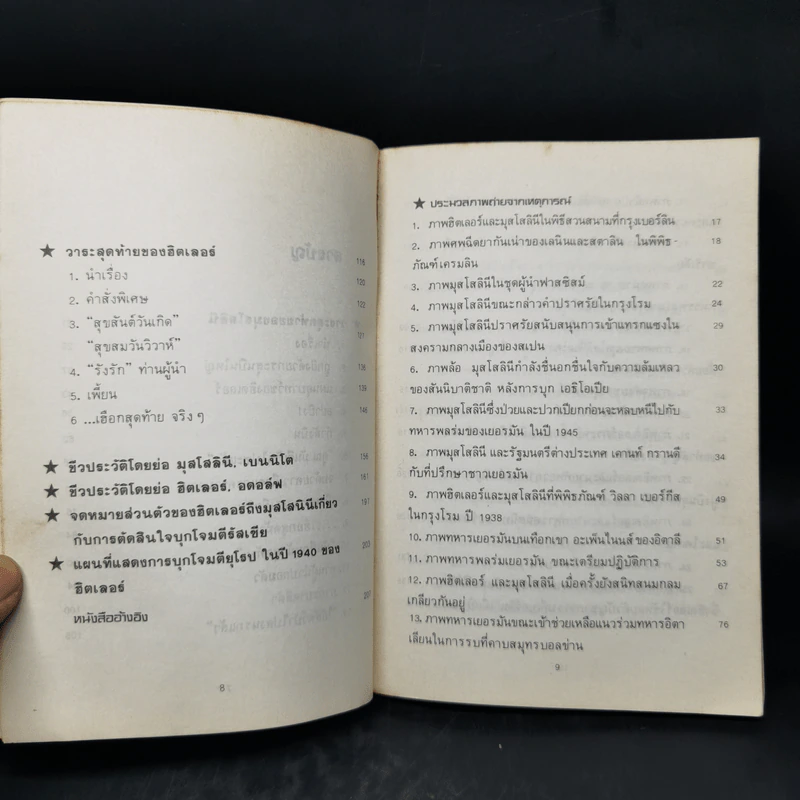 ★ วาระสุดท้ายของฮิตเลอร์ 116
1. นำเรื่อง 120
2. คำสั่งพิเศษ 122
3. "สุขสันต์วันเกิด"
"สุขสมวันวิวาห์"
4. "รังรัก" ท่านผู้นำ
5. เพี้ยน 139
6 ...เฮือกสุดท้าย จริง ๆ 146
★ ชีวประวัติโดยย่อ มุสโสลินี, เบนนิโต 156
★ ชีวประวัติโดยย่อ ฮิตเลอร์, อดอล์ฟ 161
★ จดหมายส่วนตัวของฮิตเลอร์ถึงมุสโสนินีเกี่ยว 191
กับการตัดสินใจบุกโจมตีรัสเซีย
★ แผนที่แสดงการบุกโจมตียุโรป ในปี 1940 ของ
ฮิตเลอร์
หนังสืออ้างอิง
8
★ ประมวลภาพถ่ายจากเหตุการณ์
1. ภาพฮิตเลอร์และมุสโสลินีในพิธีสวนสนามที่กรุงเบอร์ลิน 17
2. ภาพศพฉีดยากันเน่าของเลนินและสตาลิน ในพิพิธ- 18
ภัณฑ์เครมลิน
3. ภาพมุสโสลินีในชุดผู้นำฟาสซิสม์ 22
4. ภาพมุสโสลินีขณะกล่าวคำปราศรัยในกรุงโรม 24
5. ภาพมุสโสลินีปราศรัยสนับสนุนการเข้าแทรกแซงใน 29
สงครามกลางเมืองของสเปน
6. ภาพล้อ มุสโสลินีกำลังชื่นอกชื่นใจกับความล้มเหลว 30
ของสันนิบาติชาติ หลังการบุก เอธิโอเปีย
7. ภาพมุสโสลินีซึ่งป่วยและปวกเปียกก่อนจะหลบหนีไปกับ 33
ทหารพลร่มของเยอรมัน ในปี 1945
8. ภาพมุสโสลินี และรัฐมนตรีต่างประเทศ เคานท์ กรานดี
กับที่ปรึกษาชาวเยอรมัน
9. ภาพฮิตเลอร์และมุสโสลินีที่พิพิธภัณฑ์ วิลลา เบอร์กีส 49
ในกรุงโรม ปี 1938
10. ภาพทหารเยอรมันบนเทือกเขา อะเพ็นไนนส์ ของอิตาลี 51
11. ภาพทหารพลร่มเยอรมัน ขณะเตรียมปฏิบัติการ 53
12. ภาพฮิตเลอร์ และมุสโสลินี เมื่อครั้งยังสนิทสนมกลม 67
เกลียวกันอยู่
13. ภาพทหารเยอรมันขณะเข้าช่วยเหลือแนวร่วมทหารอิตา 76
เลียนในการรบที่คาบสมุทรบอลข่าน
9